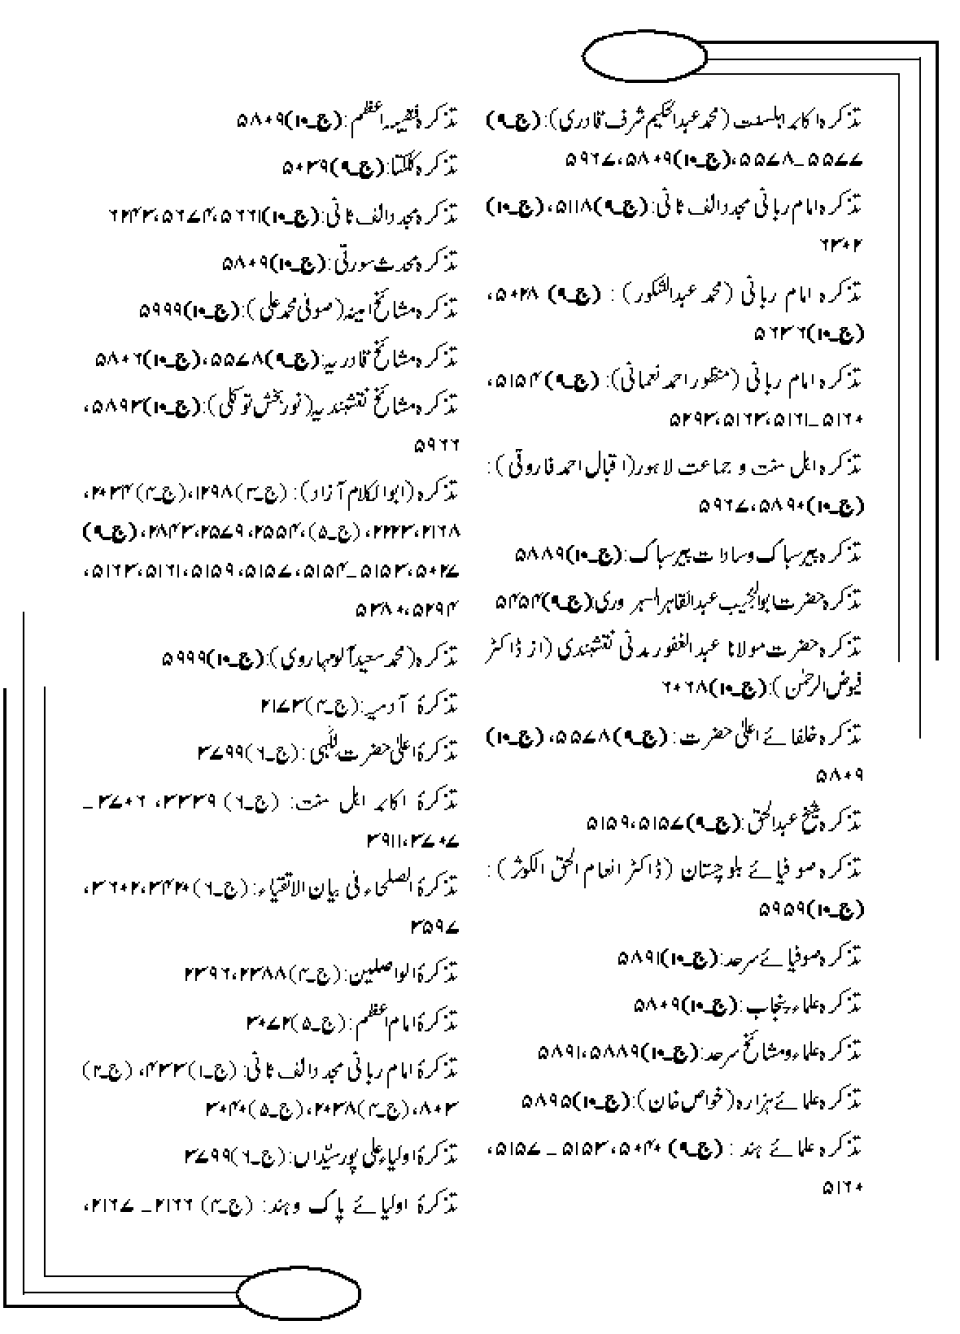 تذکرہ اکابر اہلسنت (محمد عبدالحکیم شرف قادری): (ج۔۹)
۵۵۷۷۔۵۵۷۸، (ج۔۱۰)۵۸۰۹، ۵۹۶۷
تذکرہ امام ربانی مجدد الف ثانی: (ج۔۹)۵۱۱۸، (ج۔۱۰)
۶۳۰۲
تذکرہ امام ربانی (محمد عبدالشکور) : (ج۔۹) ۵۰۲۸،
(ج۔۱۰)۵۶۳۶
تذکرہ امام ربانی (منظور احمد نعمانی): (ج۔۹) ۵۱۵۴،
۵۱۶۰۔۵۱۶۱، ۵۱۶۳، ۵۲۹۳
تذکرہ اہل سنت و جماعت لاہور(اقبال احمد فاروقی) :
(ج۔۱۰)۵۸۹۰، ۵۹۶۷
تذکرہ پیر سباک و سادات پیر سباک: (ج۔۱۰)۵۸۸۹
تذکرہ حضرت ابوالنجیب عبدالقاہر السہروردی: (ج۔۹)۵۴۵۴
تذکرہ حضرت مولانا عبدالغفور مدنی نقشبندی (از ڈاکٹر
فیوض الرحمٰن ): (ج۔۱۰)۶۰۶۸
تذکرہ خلفائے اعلیٰ حضرت : (ج۔۹)۵۵۷۸، (ج۔۱۰)
۵۸۰۹
تذکرہ شیخ عبدالحق: (ج۔۹)۵۱۵۷، ۵۱۵۹
تذکرہ صوفیائے بلوچستان (ڈاکٹر انعام الحق الکوثر ) :
(ج۔۱۰)۵۹۵۹
تذکرہ صوفیائے سرحد: (ج۔۱۰)۵۸۹۱
تذکرہ علماء پنجاب : (ج۔۱۰)۵۸۰۹
تذکرہ علماء و مشائخ سرحد: (ج۔۱۰)۵۸۸۹، ۵۸۹۱
تذکرہ علمائے ہزارہ (خواص خان) : (ج۔۱۰)۵۸۹۵
تذکرہ علمائے ہند : (ج۔۹) ۵۰۴۰، ۵۱۵۳ ۔ ۵۱۵۷،
۵۱۶۰
تذکرہ فقیہ اعظم : (ج۔۱۰)۵۸۰۹
تذکرہ کلکتا: (ج۔۹)۵۰۳۹
تذکرہ مجدد الف ثانی : (ج۔۱۰)۵۶۶۱، ۵۶۷۴، ۶۲۴۳
تذکرہ محدث سورتی: (ج۔۱۰)۵۸۰۹
تذکرہ مشائخ امینہ( صوفی محمد علی ): (ج۔۱۰)۵۹۹۹
تذکرہ مشائخ قادریہ: (ج۔۹)۵۵۷۸، (ج۔۱۰)۵۸۰۶
تذکرہ مشائخ نقشبندیہ( نور بخش توکلی ): (ج۔۱۰)۵۸۹۳،
۵۹۶۶
تذکرہ (ابوالکلام آزاد) : (ج۔۳)۱۲۹۸، (ج۔۴)۲۰۳۴،
۲۱۶۸، ۲۲۲۳، (ج۔۵)، ۲۵۵۴، ۲۵۷۹، ۲۸۴۳، (ج۔۹)
۵۰۲۷، ۵۱۵۳ ۔ ۵۱۵۴، ۵۱۵۷، ۵۱۵۹، ۵۱۶۱، ۵۱۶۳،
۵۲۹۴، ۵۳۸۰
تذکرہ (محمد سعید آلو مہاروی ): (ج۔۱۰)۵۹۹۹
تذکرۂ آدمیہ: (ج۔۴)۲۱۷۳
تذکرۂ اعلیٰ حضرت للّٰہی : (ج۔۶)۳۷۹۹
تذکرۂ اکابر اہل سنت: (ج۔۶) ۳۳۳۹، ۳۷۰۶۔
۳۷۰۷، ۳۹۱۱
تذکرۃ الصلحاء فی بیان الاتقیاء : (ج۔۶)۳۴۲۰، ۳۶۰۲،
۳۵۹۷
تذکرۃ الواصلین: (ج۔۴)۲۳۸۸، ۲۳۹۶
تذکرۂ امام اعظم : (ج۔۵)۳۰۷۲
تذکرۂ امام ربانی مجدد الف ثانی: (ج۔۱)۴۳۳، (ج۔۲)
۸۰۳، (ج۔۴)۲۰۳۸، (ج۔۵)۳۰۴۰
تذکرۂ اولیاء علی پور سیداں: (ج۔۶)۳۷۹۹
تذکرۂ اولیائے پاک و ہند: (ج۔۴) ۲۱۶۶ ۔ ۲۱۶۷،